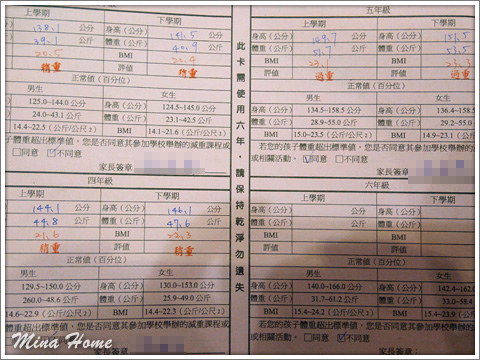 上學期
下學期
138.1 公分 身高（公分） 141.5 公分
39.1 公斤 體重（公斤） 40.9 公斤
20.5 BMI
稍重 評值 稍重
正常值（百分位）
男生 女生
125.0~144.0 公分 身高（公分） 124.5~145.0 公分
24.0~43.1 公斤 體重（公斤） 23.1~42.5 公斤
14.4~22.5（公斤/公尺2） BMI 14.1~21.6（公斤/公尺2）
體重超出標準值，您是否同意其參加學校舉辦的減重課程或
同意 不同意
家長簽章
四年級
上學期 下學期
144.1 公分 身高（公分） 146.1 公分
44.8 公斤 體重（公斤） 47.6 公斤
21.6 BMI 22.3
稍重 評值 稍重
正常值（百分位）
男生 女生
129.5~150.0 公分 身高（公分） 130.0~153.0 公分
260.0~48.6 公斤 體重（公斤） 25.9~49.0 公斤
14.6~22.9（公斤/公尺2） BMI
體重超出標準值，您是否同意其參加學校舉辦的減重課程或
同意 不同意
家長簽章
此卡需使用六年，請保持乾淨勿遺失
五年級
上學期 下學期
身高（公分） 149.7 公分 151.5
體重（公斤） 51.7 公斤 53.5
BMI 23.1 23.3
評值 過重 過重
正常值（百分位）
男生
身高（公分） 134.5~158.5 公分 136.4~158.5
體重（公斤） 29.2~55.0 公斤 29.2~55.0
BMI 15.0~23.5（公斤/公尺2） 14.9~23.1（公
若您的孩子體重超出標準值，您是否同意其參加學校舉
或相關活動。 同意 不同意
家長簽章
六年級
上學期 下學期
身高（公分） 公分
體重（公斤） 公斤
BMI
評值
正常值（百分位）
男生
身高（公分） 140.0~166.0 公分 142.4~162.0
體重（公斤） 31.7~61.2 公斤 33.0~58.4
BMI 15.4~24.2（公斤/公尺2） 15.4~23.9（公
若您的孩子體重超出標準值，您是否同意其參加學校舉
或相關活動。 同意 不同意
家長簽章：
Mina Home